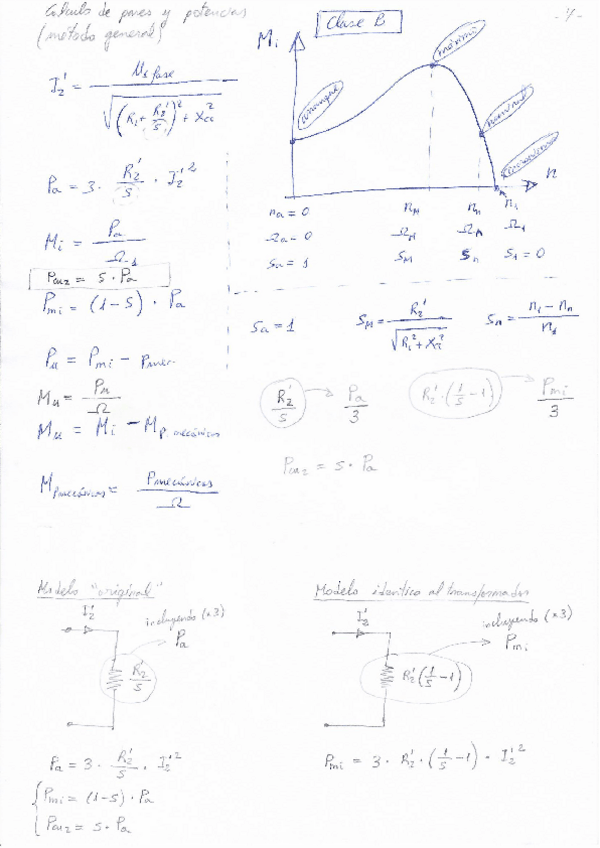 Cálculo de pares y potencias
(método general)
I₂' = U₁ fase / √((R₁ + R₂'/S)² + Xcc²)
Pa = 3 · R₂'/S · I₂'²
Mi = Pa / Ω₁
Pcu2 = S · Pa
Pmi = (1-S) · Pa
Pu = Pmi - Pmec
Mu = Pu / Ω
Mu = Mi - Mp. mecánicas
Mpmecánicas = Pmecánicas / Ω
Clase B
- 4 -
Mi
arranque
máximo
nominal
sincronismo
n
na = 0 nM nn n1
Ωa = 0 ΩM Ωn Ω1
Sa = 1 SM Sn S1 = 0
Sa = 1 SM = R₂' / √(R₁² + Xcc²) Sn = (n1 - nn) / n1
R₂'/S → Pa/3 R₂' · (1/S - 1) → Pmi/3
Pcu2 = S · Pa
Modelo "original"
I₂'
incluyendo (x3)
Pa
R₂'/S
Pa = 3 · R₂'/S · I₂'²
Pmi = (1-S) · Pa
Pcu2 = S · Pa
Modelo identico al transformador
I₂'
incluyendo (x3)
Pmi
R₂' (1/S - 1)
Pmi = 3 · R₂' · (1/S - 1) · I₂'²